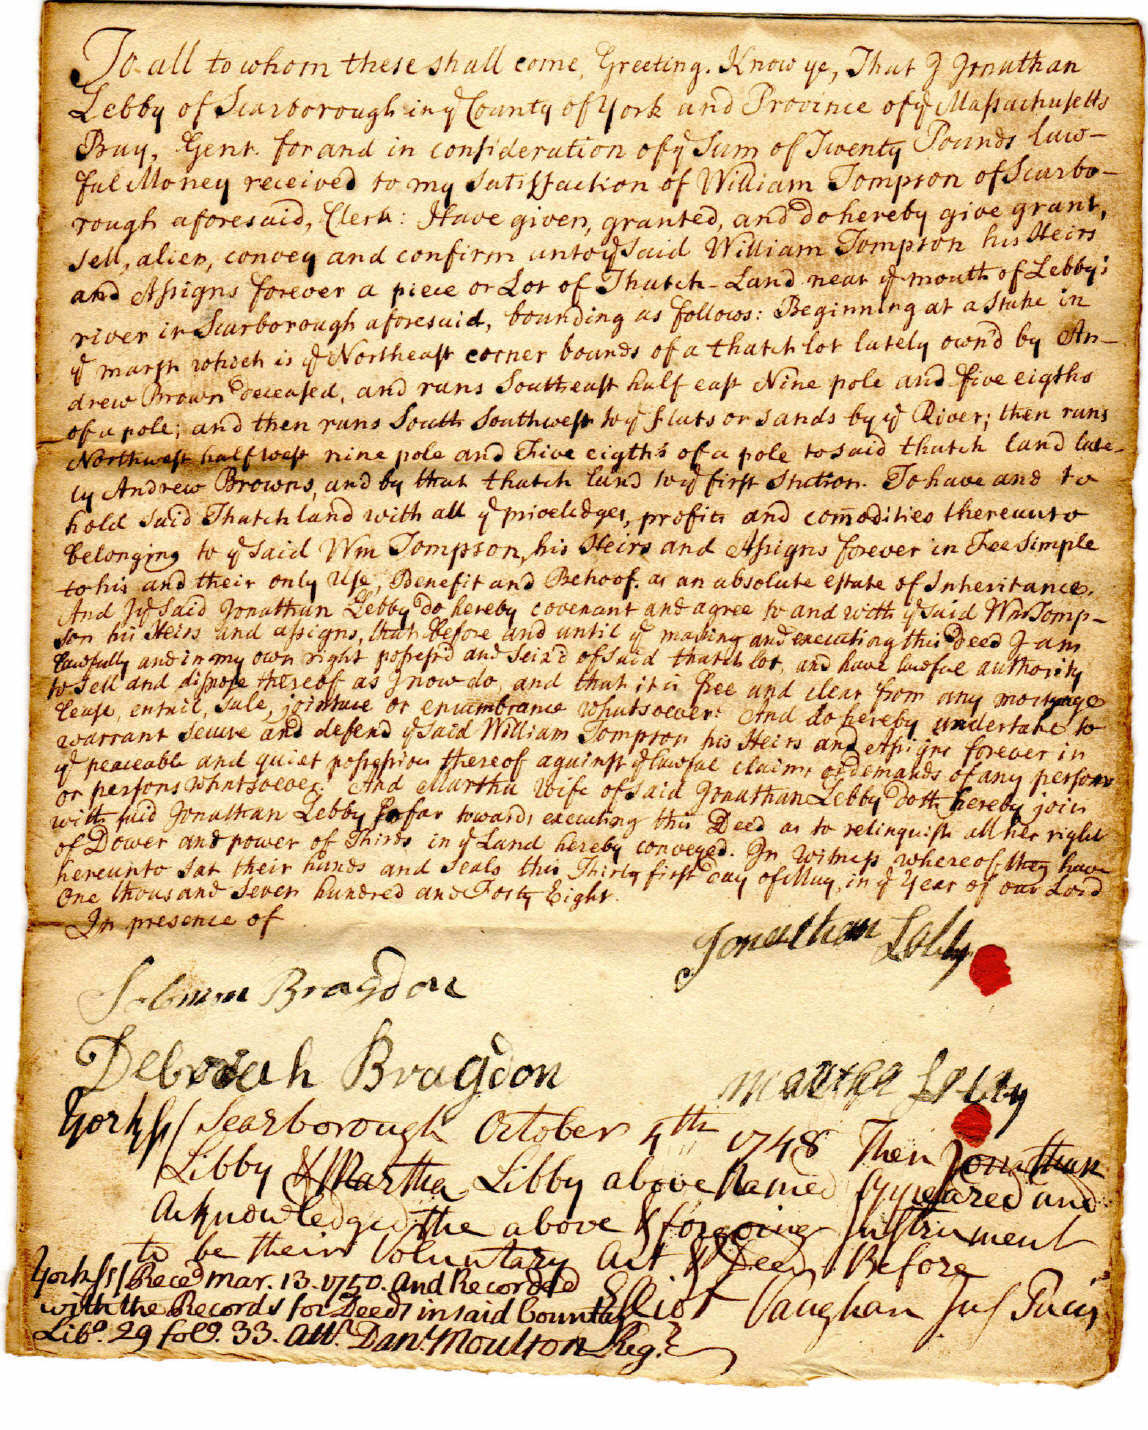 To all to whom these shall come, Greeting. Know ye, That I Jonathan
Lebby of Scarborough in ye County of York and Province of ye Massachusetts
Bay, Gent. for and in consideration of ye Sum of Twenty Pounds law-
ful Money received to my satisfaction of William Tompson of Scarbo-
rough aforesaid, Clerk: Have given, granted, and do hereby give grant,
sell, alien, convey and confirm unto ye said William Tompson his Heirs
and Assigns forever a piece or Lot of Thatch-Land near ye mouth of Lebby's
river in Scarborough aforesaid, bounding as follows: Beginning at a stake in
ye marsh which is ye Northeast corner bounds of a thatch lot lately own'd by An-
drew Brown deceased, and runs Southeast half east Nine pole and five eigths
of a pole; and then runs South Southwest to ye flats or sands by ye River; then runs
Northwest half west nine pole and Five eigths of a pole to said thatch land late-
ly Andrew Browns, and by that thatch land to ye first Station. To have and to
hold said Thatch land with all ye priveledges, profits and comodities thereunto
belonging to ye said Wm Tompson, his Heirs and Assigns forever in Fee Simple
to his and their only Use, Benefit and Behoof. as an absolute estate of Inheritance.
And I ye said Jonathan Lebby do hereby covenant and agree to and with ye said Wm Tomp-
son his Heirs and assigns, that before and until ye making and executing this Deed I am
lawfully and in my own right possess'd and seiz'd of said thatch lot, and have lawful authority
to sell and dispose thereof as I now do, and that it is free and clear from any mortgage
lease, entail, sale, jointure or encumbrance whatsoever. And do hereby undertake to
warrant secure and defend ye said William Tompson his Heirs and Assigns forever in
ye peaceable and quiet possession thereof against ye lawful claims or demands of any person
or persons whatsoever. And Martha Wife of said Jonathan Lebby doth hereby join
with said Jonathan Lebby so far towards executing this Deed as to relinquish all her right
of Dower and power of Thirds in ye Land hereby conveyed. In Witness whereof they have
hereunto sat their hands and seals this Thirty first day of May, in ye Year of our Lord
One thousand seven hundred and Forty Eight.
In presence of
Jonathan Lebby
Solomon Bragdon
Deborah Bragdon
Martha Lebby
York ss/ Scarborough October 4th 1748 Then Jonathan
Libby & Martha Libby above Named Appeared and
Acknowledged the above & forgoing Instrument
to be their Voluntary Act & Deed Before
Elliot Vaughan Jus Pacis
York ss/ Reced Mar. 13. 1750. And Recorded
with the Records for Deeds in said County
Libo. 29 folo. 33. Attr. Danl. Moulton Regr.